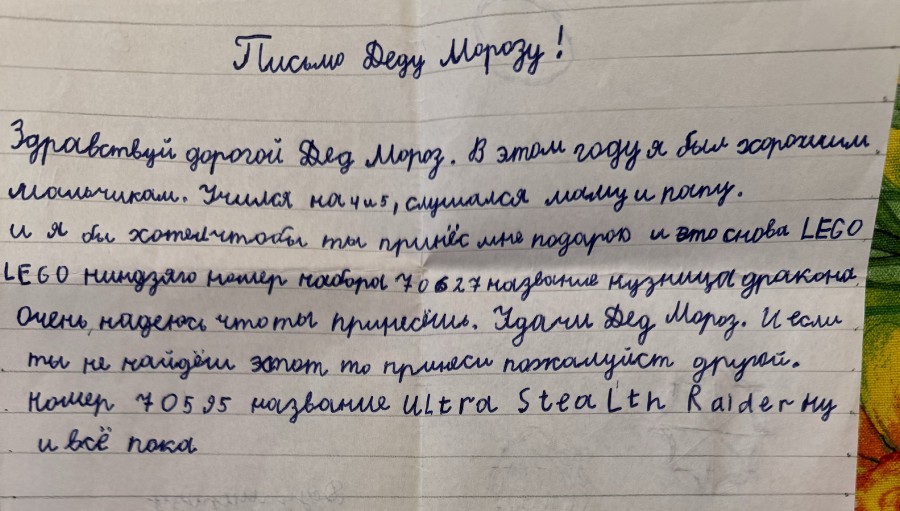 Письмо Деду Морозу!
Здравствуй дорогой Дед Мороз. В этом году я был хорошим
мальчикам. Учился на 4 и 5, слушался маму и папу.
и я бы хотел чтобы ты принёс мне подарою и это снова LEGO
LEGO ниндзяго номер набора 70627 название кузница дракона
Очень надеюсь что ты принесёшь. Удачи Дед Мороз. И если
ты не найдёш этот то принеси пожалуйст другой.
номер 70595 название ULtra SteaLth Raider ну
и всё пока